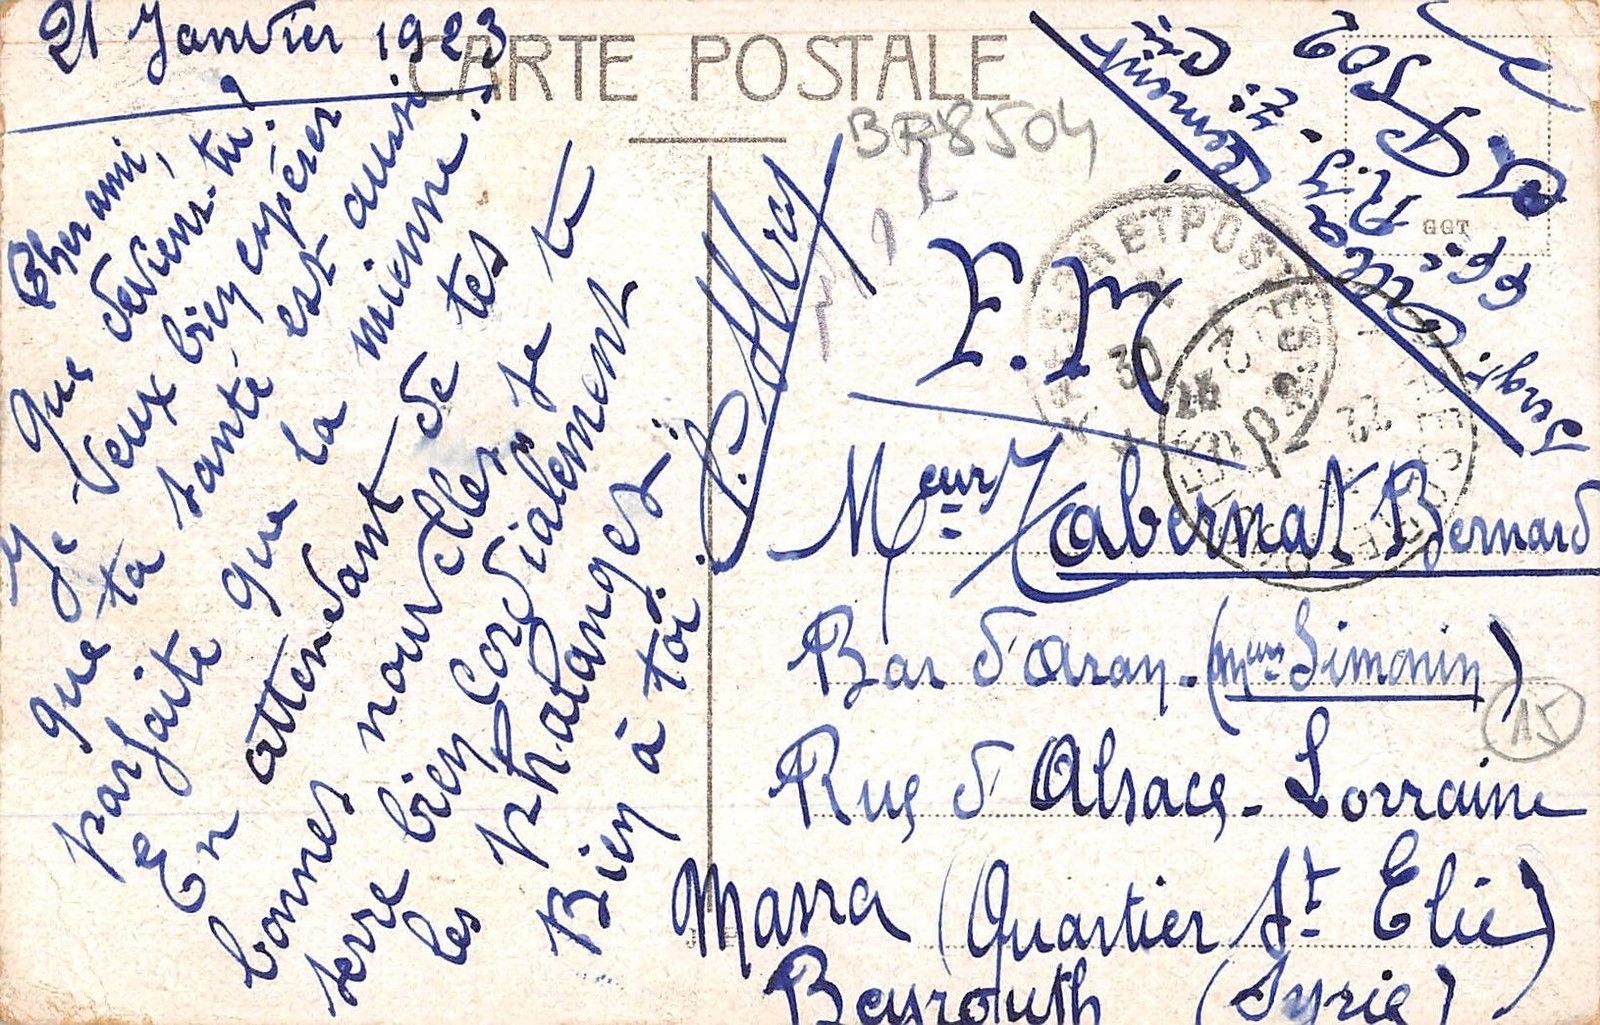 21 Janvier 1923
CARTE POSTALE
BR8504
Cher ami,
Que deviens-tu?
Je veux bien espérer
que ta santé est aussi
parfaite que la mienne.
En attendant de tes
bonnes nouvelles je te
serre bien cordialement
les phalanges.
Bien à toi.
Sergt
Clément
R.
S.P. 502
GGT
F.M
30
Meur Tabernat Bernard
Bar d'Aran - (Meur Simonin)
15
Rue d'Alsace-Lorraine
Masra (Quartier St Elie)
Beyrouth (Syrie)